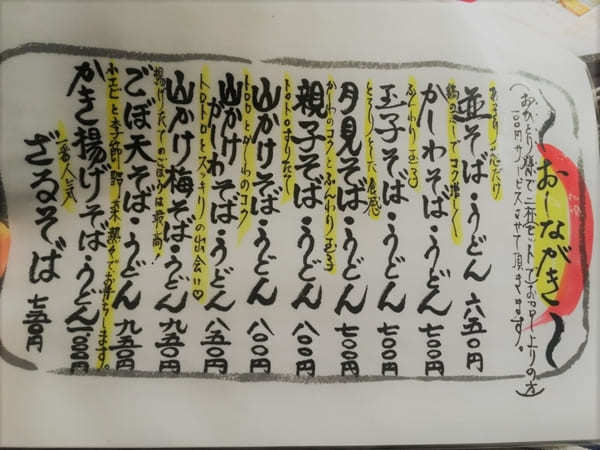 〜おしながき〜
(おひとり様で二杯セットでお召し上りの方
100円サービスさせて頂きます。)
あっさりだしだけ
並そば・うどん 六五〇円
鶏のだしでコク増し
かしわそば・うどん 七〇〇円
ふんわり玉子
玉子そば・うどん 七〇〇円
とろりとした食感
月見そば・うどん 七〇〇円
かしわのコクとふんわり玉子
親子そば・うどん 八〇〇円
トロトロすりたて
山かけそば・うどん 八〇〇円
トロロとかしわのコク
山かけかしわそば・うどん 八五〇円
トロトロとスッキリの出会い♡
山かけ梅そば・うどん 九五〇円
揚げたてのごぼうは最高
ごぼ天そば・うどん 九五〇円
小エビと季節野菜熱々でお待ちします。
かき揚げそば・うどん 一〇〇〇円
一番人気
ざるそば 七五〇円